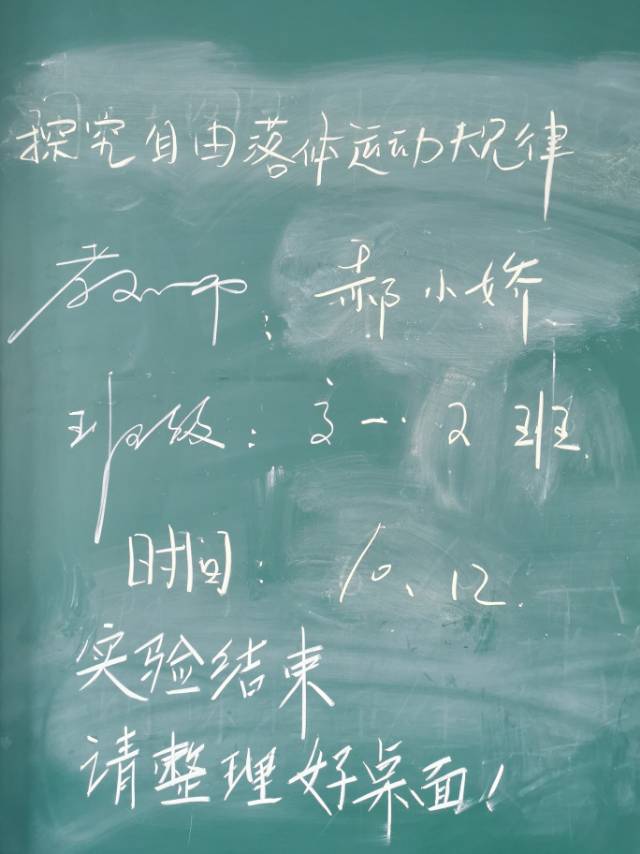 探究自由落体运动规律
教师：郝小娇
班级：高一.2班.
时间：10、12.
实验结束
请整理好桌面！